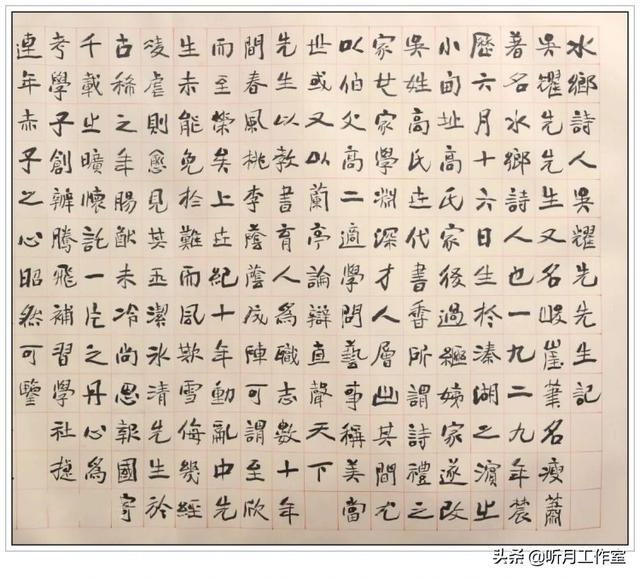 水鄉詩人吳耀先先生記
吳耀先先生又名峴崖筆名瘦蕭
著名水鄉詩人也一九二九年農
歷六月十六日生於溱湖之濱之
小甸址高氏家後過繼姨家遂改
吳姓高氏世代書香所謂詩禮之
家世家學淵深才人層出其間尤
以伯父高二適學問藝事稱美當
世或又以蘭亭論辯直聲天下
先生以教書育人為職志數十年
間春風桃李蔭蔭成陣可謂至欣
而至榮矣上世紀十年動亂中先
生未能免於難而風欺雪侮幾經
凌虐則愈見其玉潔冰清先生於
古稀之年腸猷未冷尚思報國寄
千載之曠懷託一片之丹心為
考學子創辦騰飛補習學社捷
連年赤子之心昭然可鑒
头条 @听月工作室